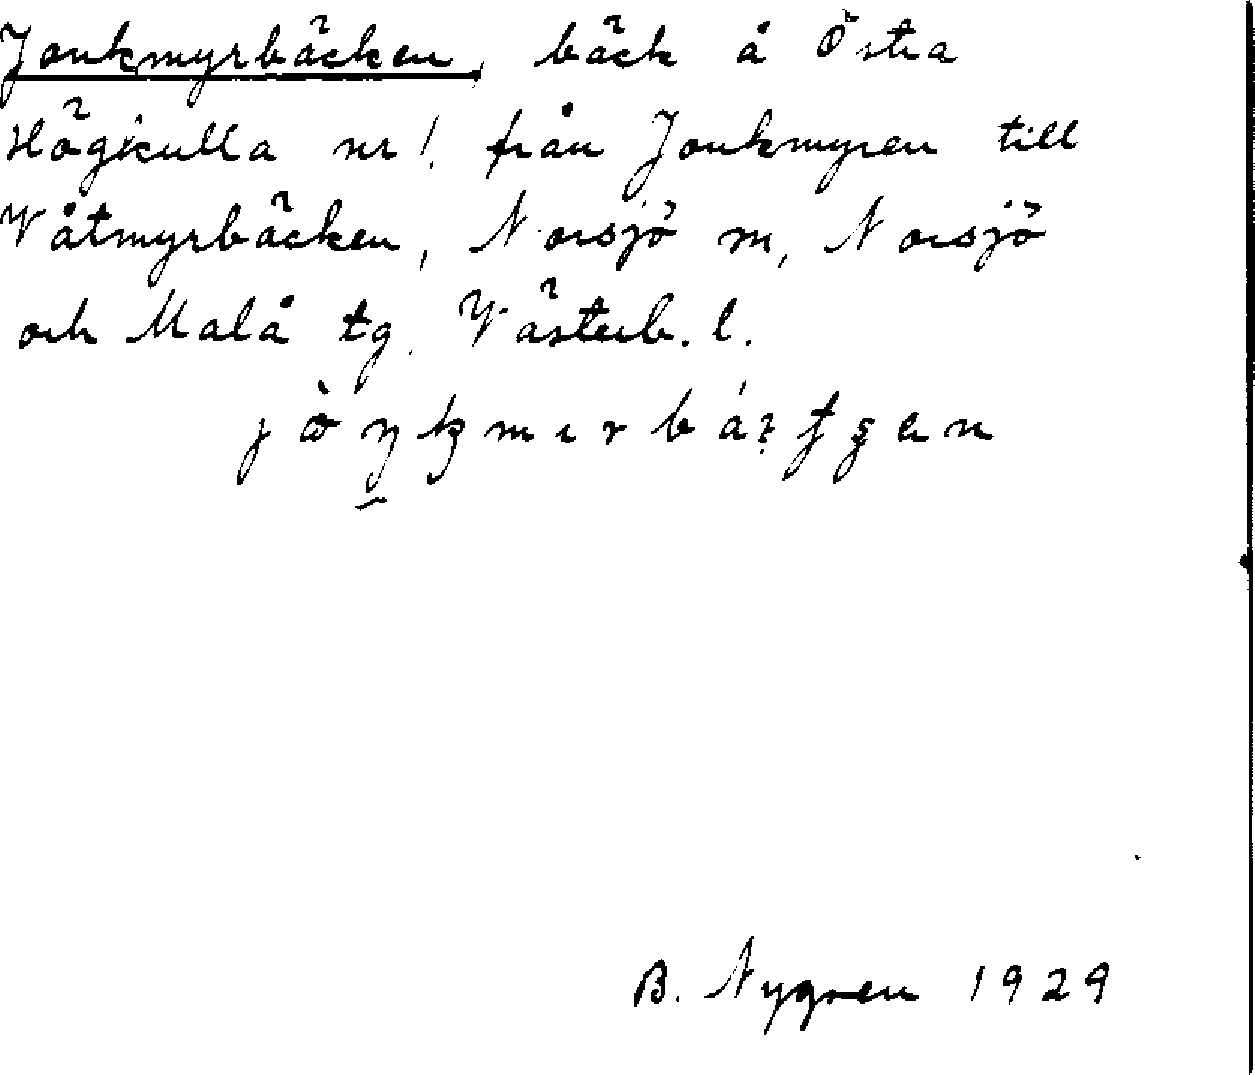 Jonkmyrbäcken, bäck å Östra
Högkulla nr 1. från Jonkmyren till
Våtmyrbäcken, Norsjö m, Norsjö
och Malå tg. Västerb. l.
B. Nygren 1929